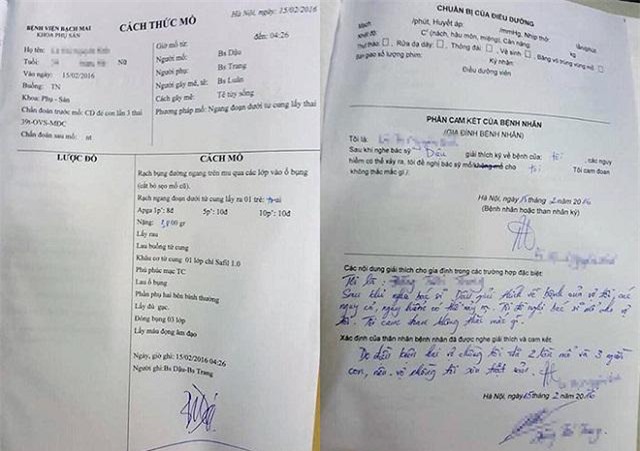 Hà Nội, ngày: 15/02/2016
BỆNH VIỆN BẠCH MAI
KHOA PHỤ SẢN
CÁCH THỨC MỔ
Họ tên:
Tuổi: Nữ
Vào ngày: 15/02/2016
Buồng: TN
Khoa: Phụ - Sản
Chẩn đoán trước mổ: CD đẻ con lần 3 thai
39t-OVS-MDC
Chẩn đoán sau mổ: nt
Giờ mổ từ: đến: 04:26
Người mổ: Bs Dậu
Người phụ: Bs Trang
Người gây mê, tê: Bs Luân
Cách gây mê: Tê tủy sống
Phương pháp mổ: Ngang đoạn dưới tử cung lấy thai
LƯỢC ĐỒ
CÁCH MỔ
Rạch bụng đường ngang trên mu qua các lớp vào ổ bụng
(cắt bỏ sẹo mổ cũ).
Rạch ngang đoạn dưới tử cung lấy ra 01 trẻ: trai
Apga 1p': 8đ 5p': 10đ 10p': 10đ
Nặng: gr
Lấy rau
Lau buồng tử cung
Khâu cơ tử cung 01 lớp chỉ Safil 1.0
Phủ phúc mạc TC
Lau ổ bụng
Phần phụ hai bên bình thường
Lấy đủ gạc.
Đóng bụng 03 lớp
Lấy máu đọng âm đạo
Ngày, giờ ghi: 15/02/2016 04:26
Người ghi: Bs Dậu-Bs Trang
CHUẨN BỊ CỦA ĐIỀU DƯỠNG
Mạch /phút, Huyết áp: /mmHg, Nhịp thở: lần/phút
Nhiệt độ: C (nách, hậu môn, miệng). Cân nặng kg
Thử tháo: , Rửa dạ dày: , Thông đái: , Vệ sinh , Băng vô trùng vùng mổ
Bàn giao số lượng phim:
Ký nhận:
Điều dưỡng viên
PHẦN CAM KẾT CỦA BỆNH NHÂN
(GIA ĐÌNH BỆNH NHÂN)
Tôi là:
Sau khi nghe bác sỹ Dậu giải thích kỹ về bệnh của: tôi , các nguy
hiểm có thể xảy ra, tôi đề nghị bác sỹ mổ không mổ cho tôi Tôi cam đoan
không thắc mắc gì./.
Hà Nội, ngày 15 tháng 2 năm 2016
(Bệnh nhân hoặc thân nhân ký)
Các nội dung giải thích cho gia đình trong các trường hợp đặc biệt:
Tôi là:
Sau khi nghe bác sĩ Dậu giải thích về bệnh của vợ tôi, các
nguy cơ, nguy hiểm có thể xảy ra. Tôi đề nghị bác sĩ mổ cho vợ
tôi. Tôi cam đoan không thắc mắc gì.
Xác định của thân nhân bệnh nhân đã được nghe giải thích và cam kết.
Do điều kiện hai vợ chồng tôi đã 2 lần mổ và 3 người
con, nên vợ chồng tôi xin triệt sản.
Hà Nội, ngày 15 tháng 2 năm 2016